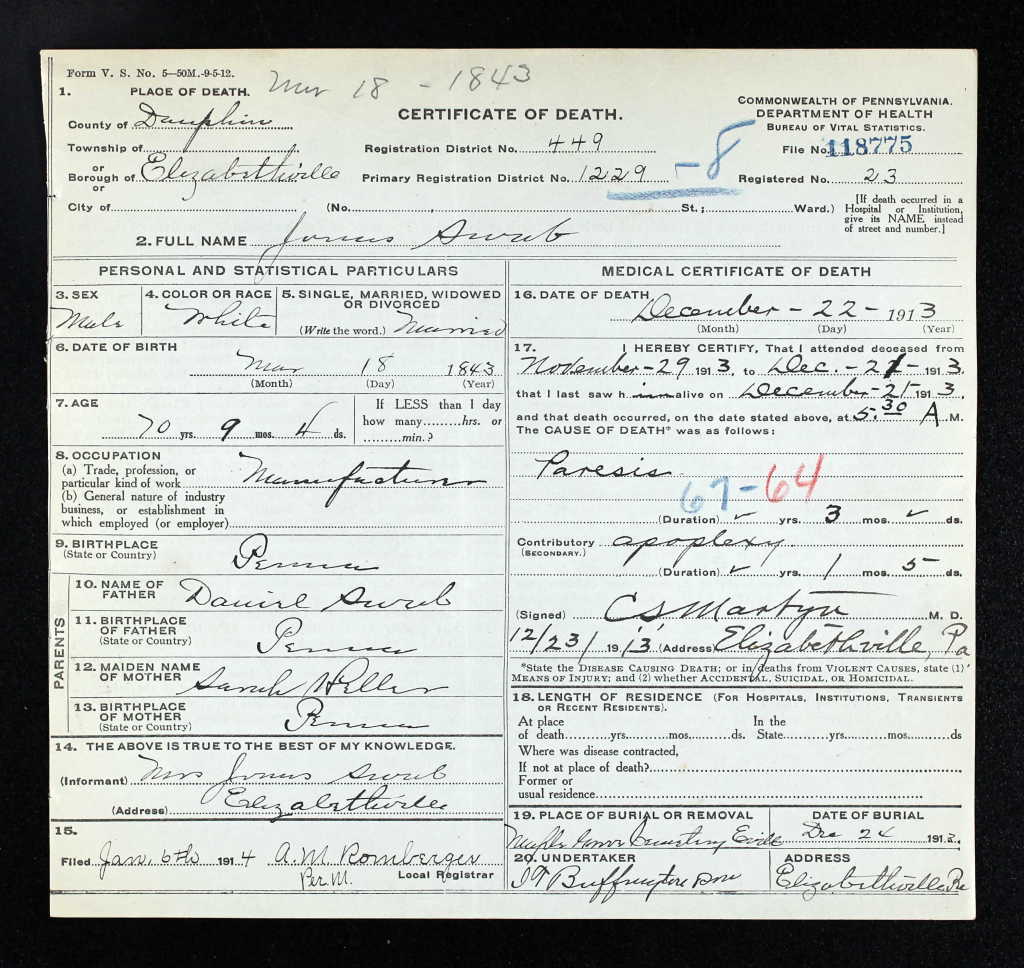 Form V. S. No. 5—50M.-9-5-12.
Mar 18 - 1843
1. PLACE OF DEATH.
County of Dauphin
Township of
or
Borough of Elizabethville
or
City of (No. , St.; Ward.)
CERTIFICATE OF DEATH.
Registration District No. 449
Primary Registration District No. 1229
-8
COMMONWEALTH OF PENNSYLVANIA.
DEPARTMENT OF HEALTH
BUREAU OF VITAL STATISTICS.
File No. 118775
Registered No. 23
[If death occurred in a
Hospital or Institution,
give its NAME instead
of street and number.]
2. FULL NAME Jonas Swab
PERSONAL AND STATISTICAL PARTICULARS
3. SEX
Male
4. COLOR OR RACE
White
5. SINGLE, MARRIED, WIDOWED
OR DIVORCED
(Write the word.) Married
6. DATE OF BIRTH
Mar 18 1843
(Month) (Day) (Year)
7. AGE
70 yrs. 9 mos. 4 ds.
If LESS than 1 day
how many hrs. or
min.?
8. OCCUPATION
(a) Trade, profession, or
particular kind of work Manufacturer
(b) General nature of industry
business, or establishment in
which employed (or employer)
9. BIRTHPLACE
(State or Country)
Penna
PARENTS
10. NAME OF
FATHER
Daniel Swab
11. BIRTHPLACE
OF FATHER
(State or Country)
Penna
12. MAIDEN NAME
OF MOTHER
Sarah
13. BIRTHPLACE
OF MOTHER
(State or Country)
Penna
14. THE ABOVE IS TRUE TO THE BEST OF MY KNOWLEDGE.
(Informant) Mrs Jonas Swab
(Address) Elizabethville
15.
Filed Jan. 6th 1914 A.M. Romberger
Per M. Local Registrar
MEDICAL CERTIFICATE OF DEATH
16. DATE OF DEATH
December - 22 - 1913
(Month) (Day) (Year)
17. I HEREBY CERTIFY, That I attended deceased from
November - 29 1913, to Dec. - 21 - 1913,
that I last saw him alive on December - 21 - 1913,
and that death occurred, on the date stated above, at 5.30 A M.
The CAUSE OF DEATH* was as follows:
Paresis
67-64
(Duration) ✓ yrs. 3 mos. ✓ ds.
Contributory apoplexy
(SECONDARY.)
(Duration) ✓ yrs. 1 mos. 5 ds.
(Signed) C S Martyn M. D.
12/23/ 1913 (Address) Elizabethville, Pa
*State the DISEASE CAUSING DEATH; or in deaths from VIOLENT CAUSES, state (1)
MEANS OF INJURY; and (2) whether ACCIDENTAL, SUICIDAL, OR HOMICIDAL.
18. LENGTH OF RESIDENCE (FOR HOSPITALS, INSTITUTIONS, TRANSIENTS
OR RECENT RESIDENTS).
At place
of death yrs. mos. ds.
In the
State yrs. mos. ds
Where was disease contracted,
If not at place of death?
Former or
usual residence
19. PLACE OF BURIAL OR REMOVAL
Cemetery
DATE OF BURIAL
Dec 24 1913.
20. UNDERTAKER
Buffington Son
ADDRESS
Elizabethville Pa